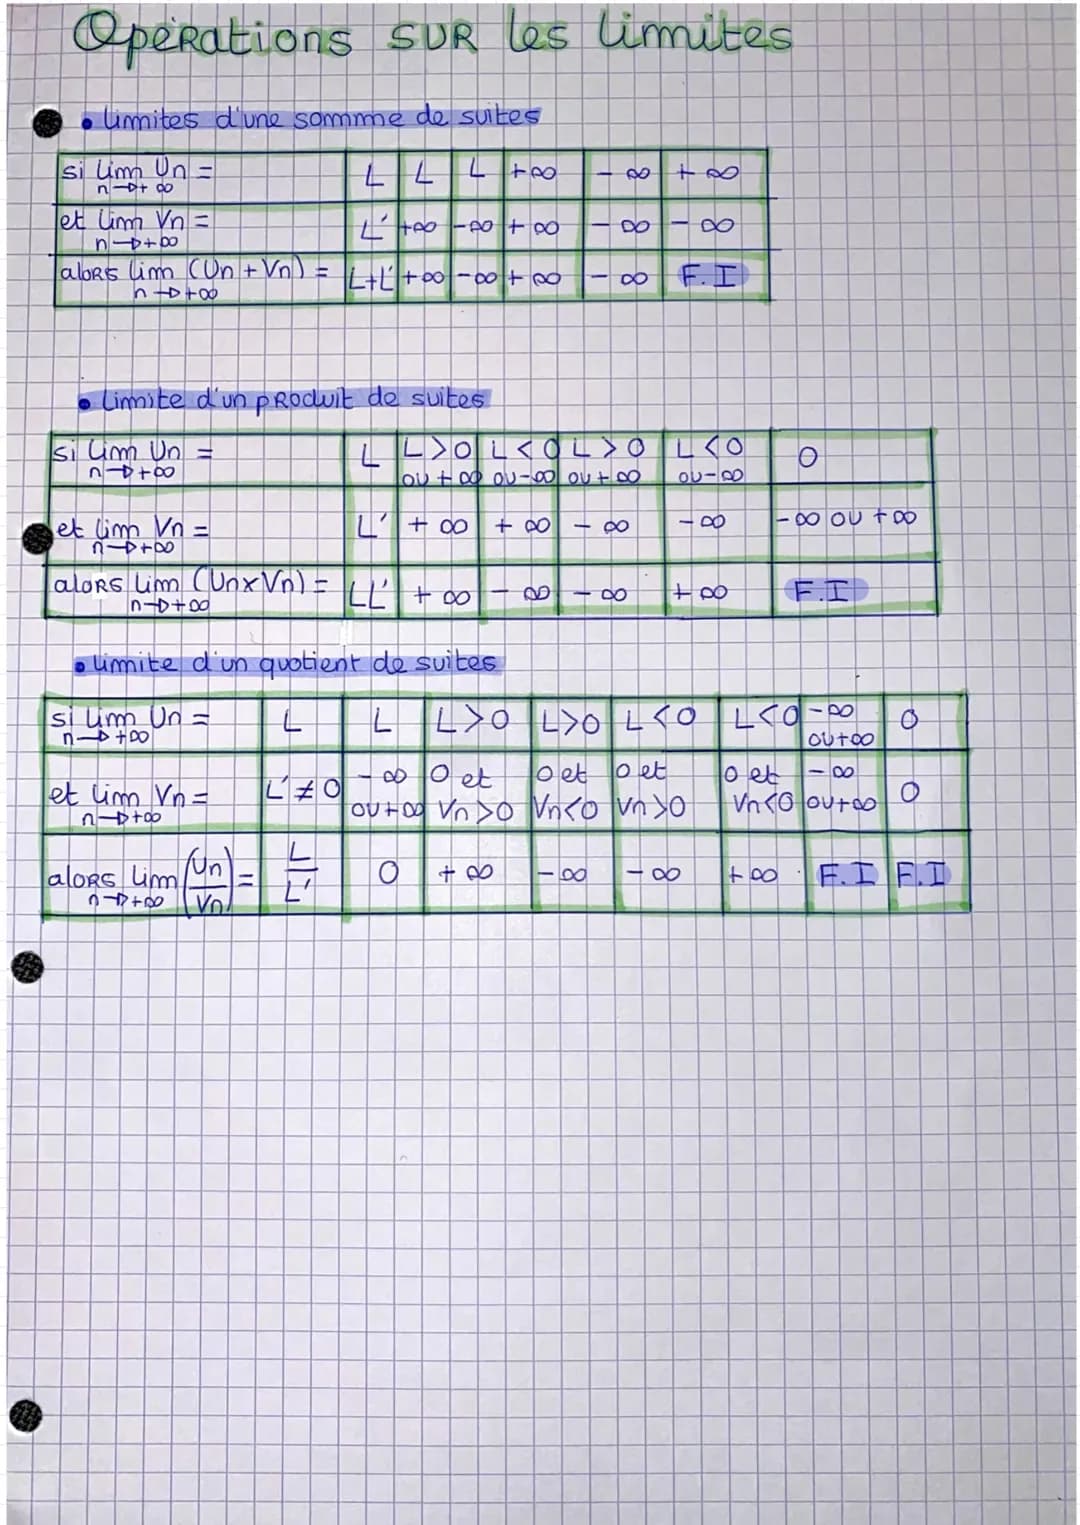 Opérations sur les limites
• limites d'une somme de suites
si lim Un = L L L +∞ -∞ +∞
n→+∞
et lim Vn = L' +∞ -∞ +∞ -∞ -∞
n→+∞
alors lim (Un+Vn) = L+L' +∞ -∞ +∞ -∞ F.I
n→+∞
• Limite d'un produit de suites
si lim Un = L L>0 L<0 L>0 L<0 0
n→+∞ ou +∞ ou -∞ ou +∞ ou -∞
et lim Vn = L' +∞ +∞ -∞ -∞ -∞ ou +∞
n→+∞
alors lim (Un×Vn) = LL' +∞ -∞ -∞ +∞ F.I
n→+∞
• limite d'un quotient de suites
si lim Un = L L L>0 L>0 L<0 L<0 -∞ 0
n→+∞ ou +∞
et lim Vn = L'≠0 -∞ 0 et 0 et 0 et 0 et -∞ 0
n→+∞ ou +∞ Vn>0 Vn<0 Vn>0 Vn<0 ou +∞
alors lim (Un/Vn) = L/L' 0 +∞ -∞ -∞ +∞ F.I F.I
n→+∞